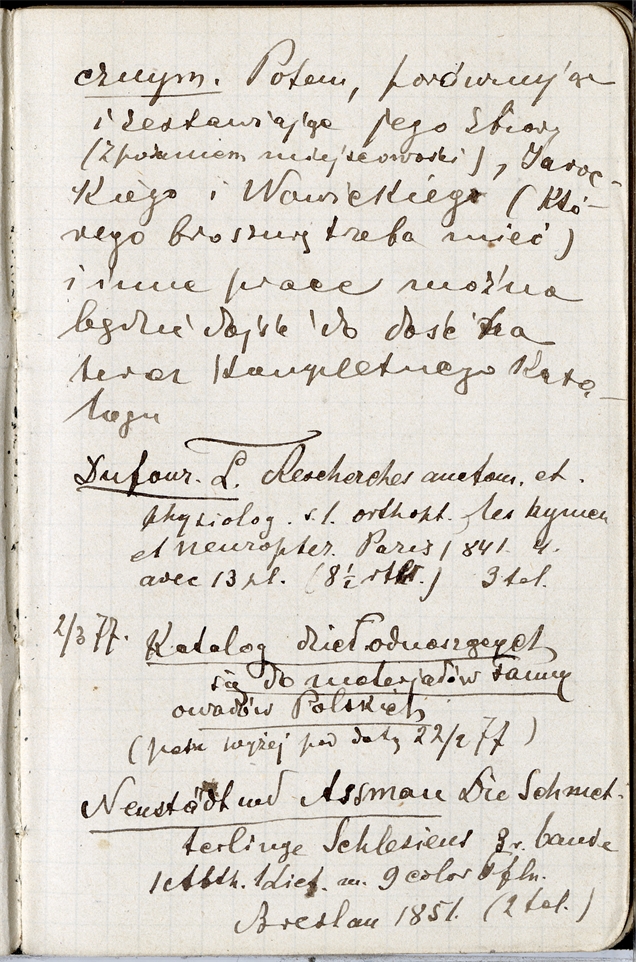 cznym. Potem, porównyjąc
i zestawiając jego zbiory
(z podaniem miejscowości), Jaroc-
kiego i Nowickiego (któ-
rego broszury trzeba mieć)
i inne prace można
będzie dojść do dość na
teraz kompletnego Kata-
logu
Dufour. L. Rescherches anatom. et.
physiolog. s. l. orthopt. les hymen
et neuropter. Paris 1841. 4.
avec 13 pl. (8½ rtlr.) 3 tal.
2/3 77. Katalog dzieł odnoszących
się do materjałów fauny
owadów Polskich
(patrz wyżej pod datą 22/2 77)
Neustädt und Assman Die Schmet-
terlinge Schlesiens 3 r. bande
1 Abth. 1 Lief. m. 9 color Tfln.
Breslau 1851. (2 tal.)